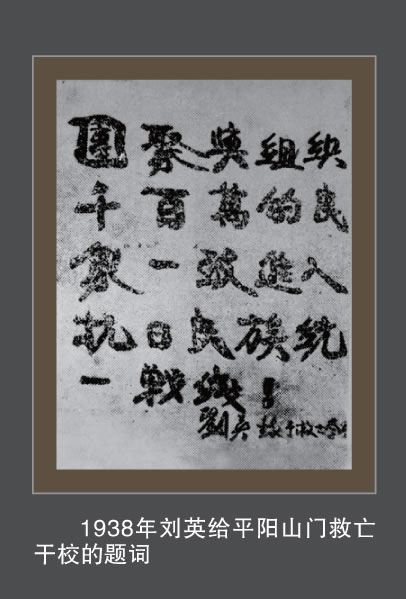 團聚與組織
千百萬的民
衆一致進入
抗日民族統
一戰綫！
劉英
1938年刘英给平阳山门救亡
干校的题词